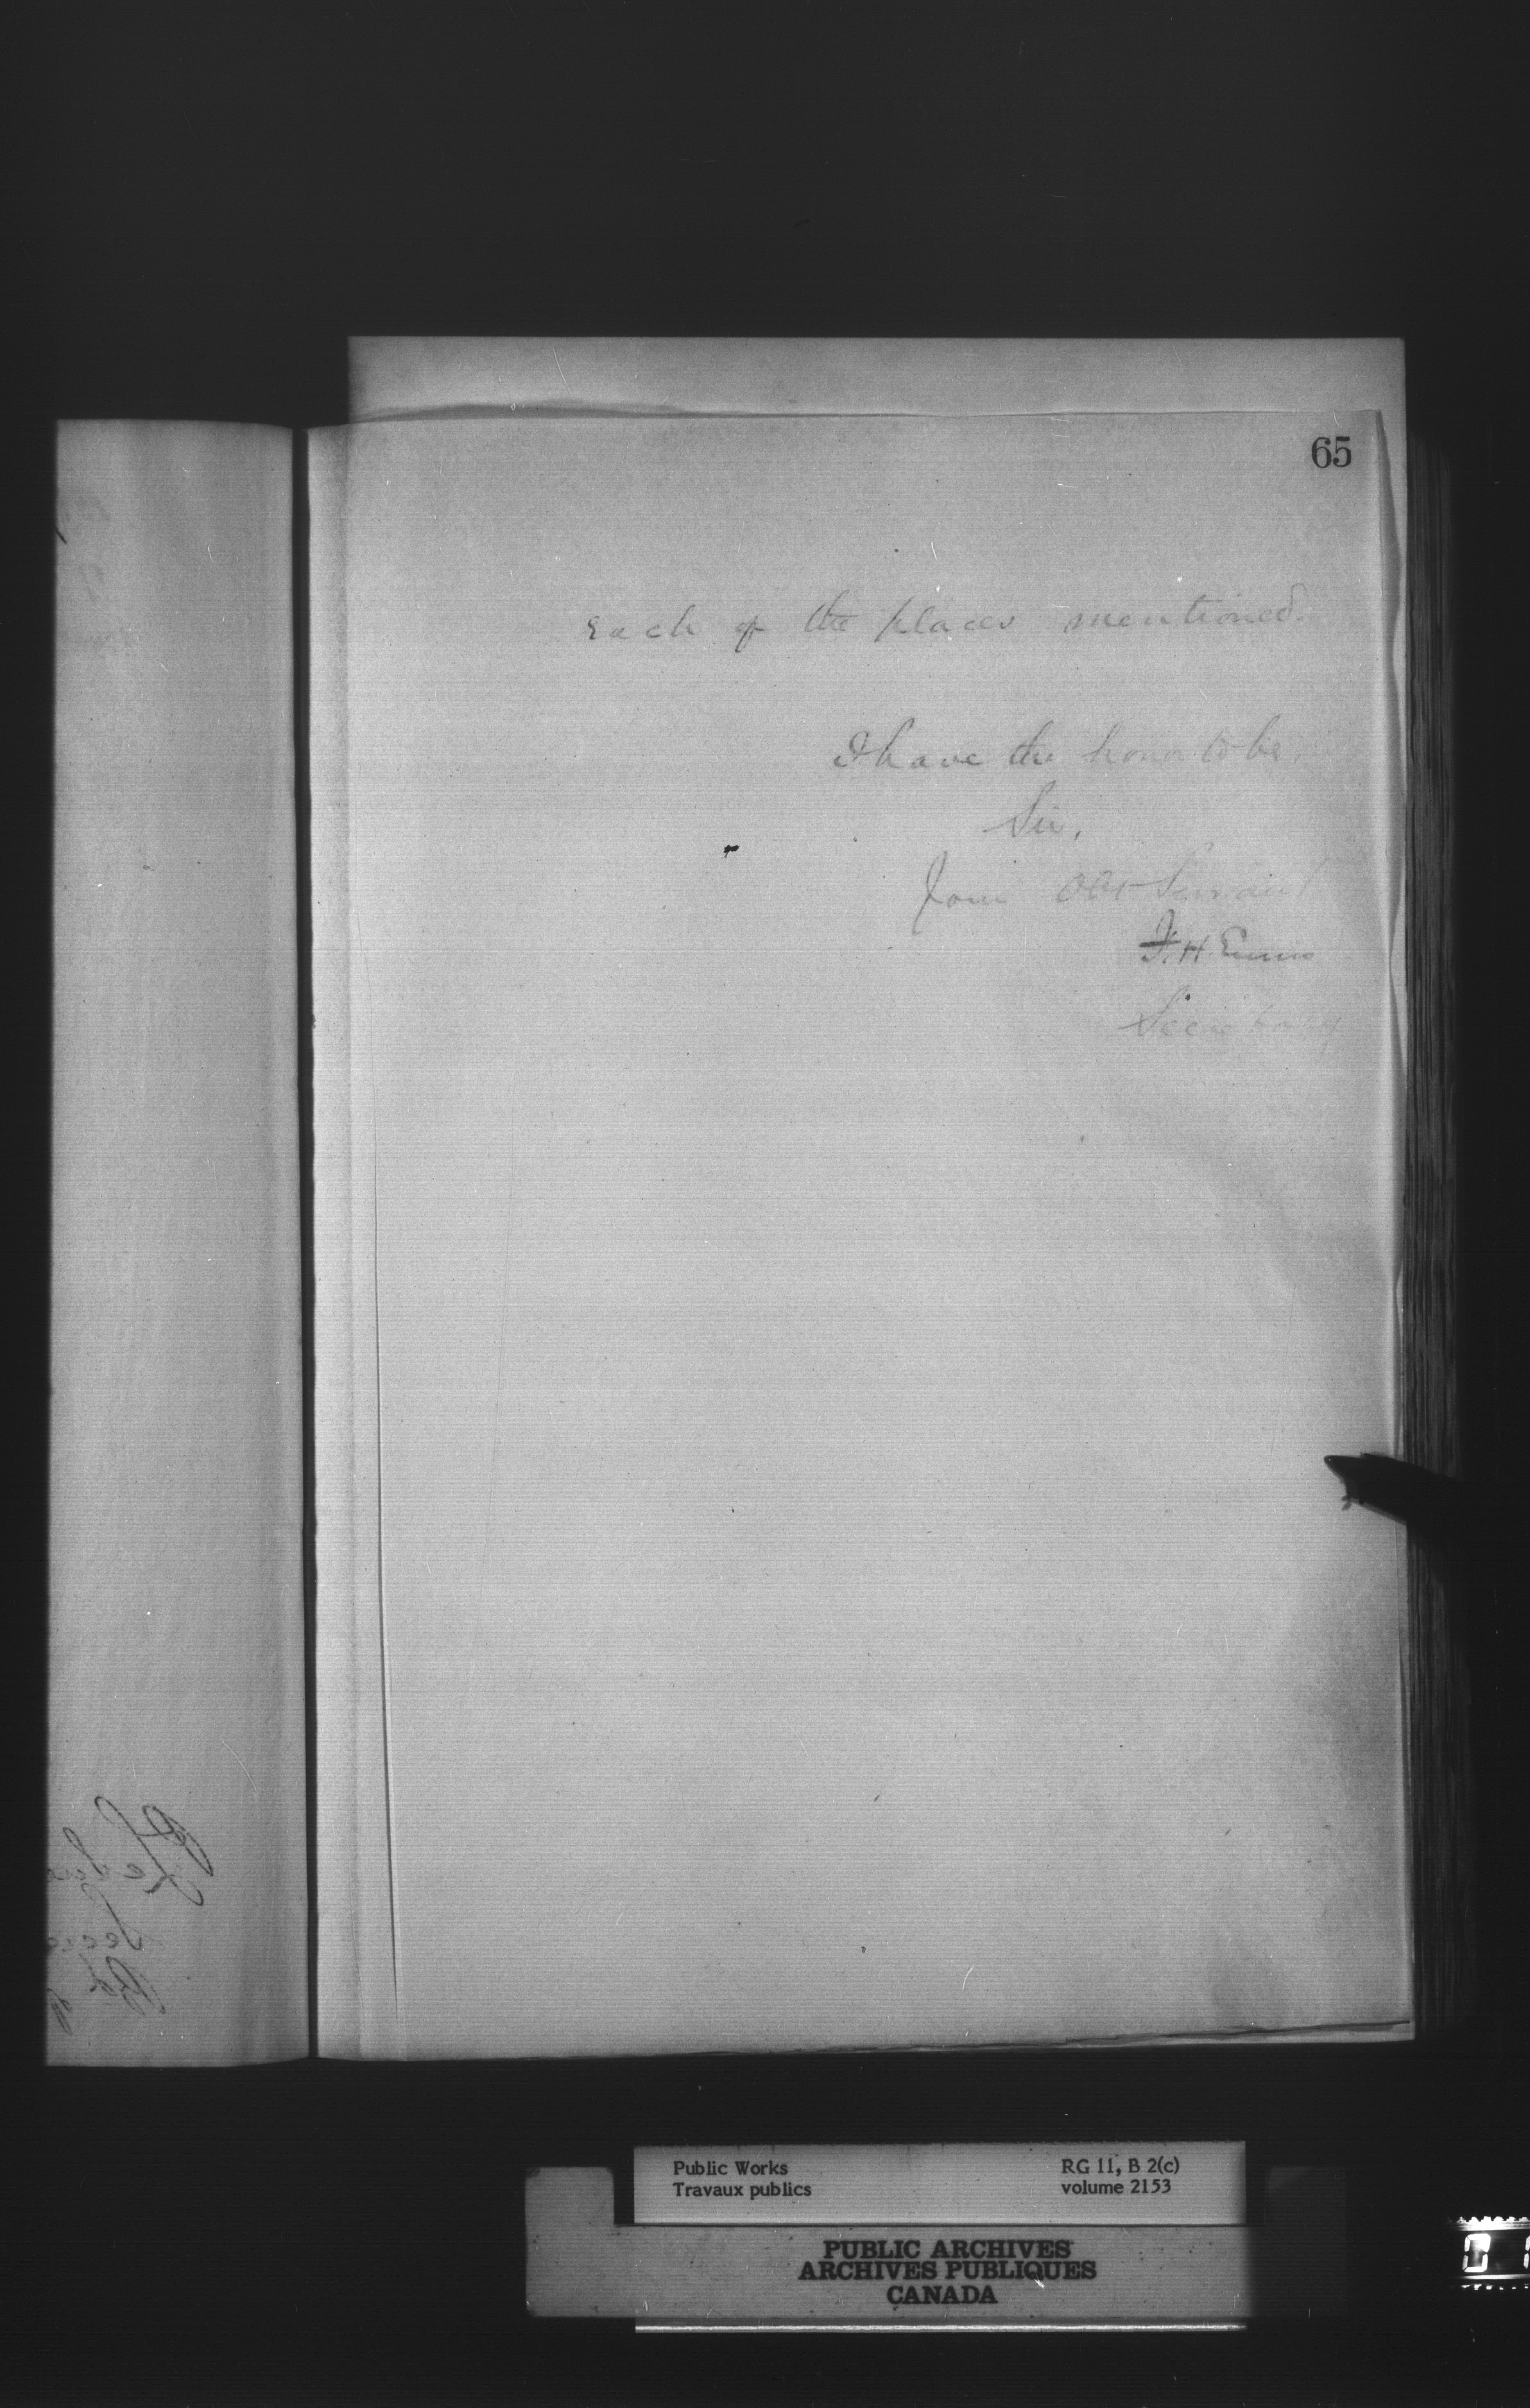 65
each of the places mentioned.
I have the honor to be,
Sir,
Your Obt Servant
F. H. Ennis
Secretary
Public Works
Travaux publics
RG 11, B 2(c)
volume 2153
PUBLIC ARCHIVES
ARCHIVES PUBLIQUES
CANADA